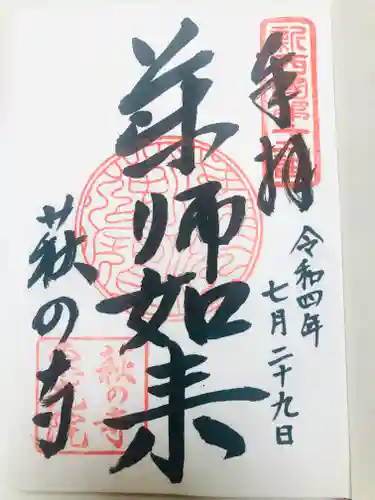 奉拝
令和四年
七月二十九日
薬師如来
萩の寺
萩の寺